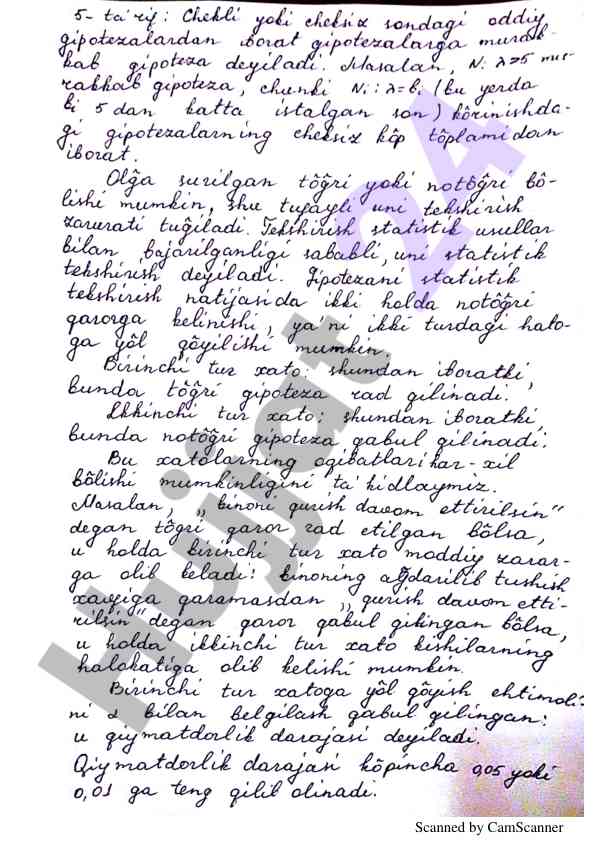 5- ta'rif: Chekli yoki cheksiz sondagi oddiy
gipotezalardan iborat gipotezalarga murak-
kab gipoteza deyiladi. Masalan, N: λ>5 mu-
rakkab gipoteza, chunki Ni: λ=bi (bu yerda
bi 5 dan katta istalgan son) kôrinishda-
gi gipotezalarning cheksiz kôp tôplamidan
iborat.
Olĝa surilgan tôĝri yoki notôĝri bô-
lishi mumkin, shu tufayli uni tekshirish
zarurati tuĝiladi. Tekshirish statistik usullar
bilan bajarilganligi sababli, uni statistik
tekshirish deyiladi. Gipotezani statistik
tekshirish natijasida ikki holda notôĝri
qarorga kelinishi, ya'ni ikki turdagi hato-
ga yôl qôyilishi mumkin.
Birinchi tur xato: shundan iboratki,
bunda tôĝri gipoteza rad qilinadi.
Ikkinchi tur xato: shundan iboratki,
bunda notôĝri gipoteza qabul qilinadi.
Bu xatolarning oqibatlari har-xil
bôlishi mumkinligini ta'kidlaymiz.
Masalan, „binoni qurish davom ettirilsin"
degan tôgri qaror rad etilgan bôlsa,
u holda birinchi tur xato moddiy zarar-
ga olib keladi: binoning aĝdarilib tushish
xavfiga qaramasdan „qurish davom etti-
rilsin" degan qaror qabul qilingan bôlsa,
u holda ikkinchi tur xato kishilarning
halokatiga olib kelishi mumkin.
Birinchi tur xatoga yôl qôyish ehtimoli-
ni α bilan belgilash qabul qilingan:
u qiymatdorlik darajasi deyiladi.
Qiymatdorlik darajasi kôpincha 0,05 yoki
0,01 ga teng qilib olinadi.
Hujjat 24
Scanned by CamScanner